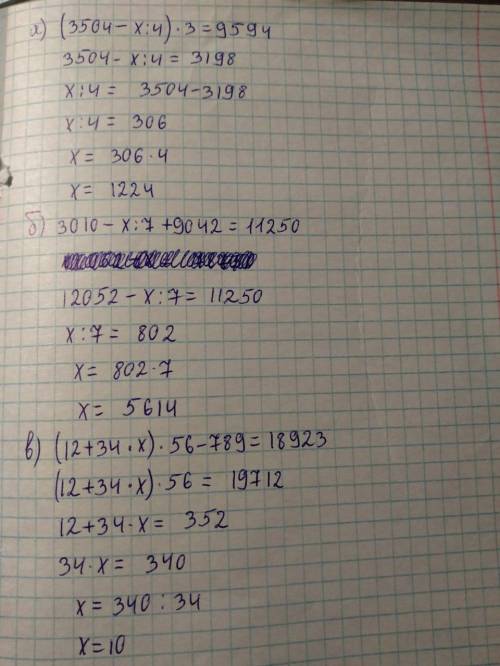 а) (3504 - x:4)·3 = 9594
3504 - x:4 = 3198
x:4 = 3504 - 3198
x:4 = 306
x = 306·4
x = 1224
б) 3010 - x:7 + 9042 = 11250
12052 - x:7 = 11250
x:7 = 802
x = 802·7
x = 5614
в) (12 + 34·x)·56 - 789 = 18923
(12 + 34·x)·56 = 19712
12 + 34·x = 352
34·x = 340
x = 340 : 34
x = 10